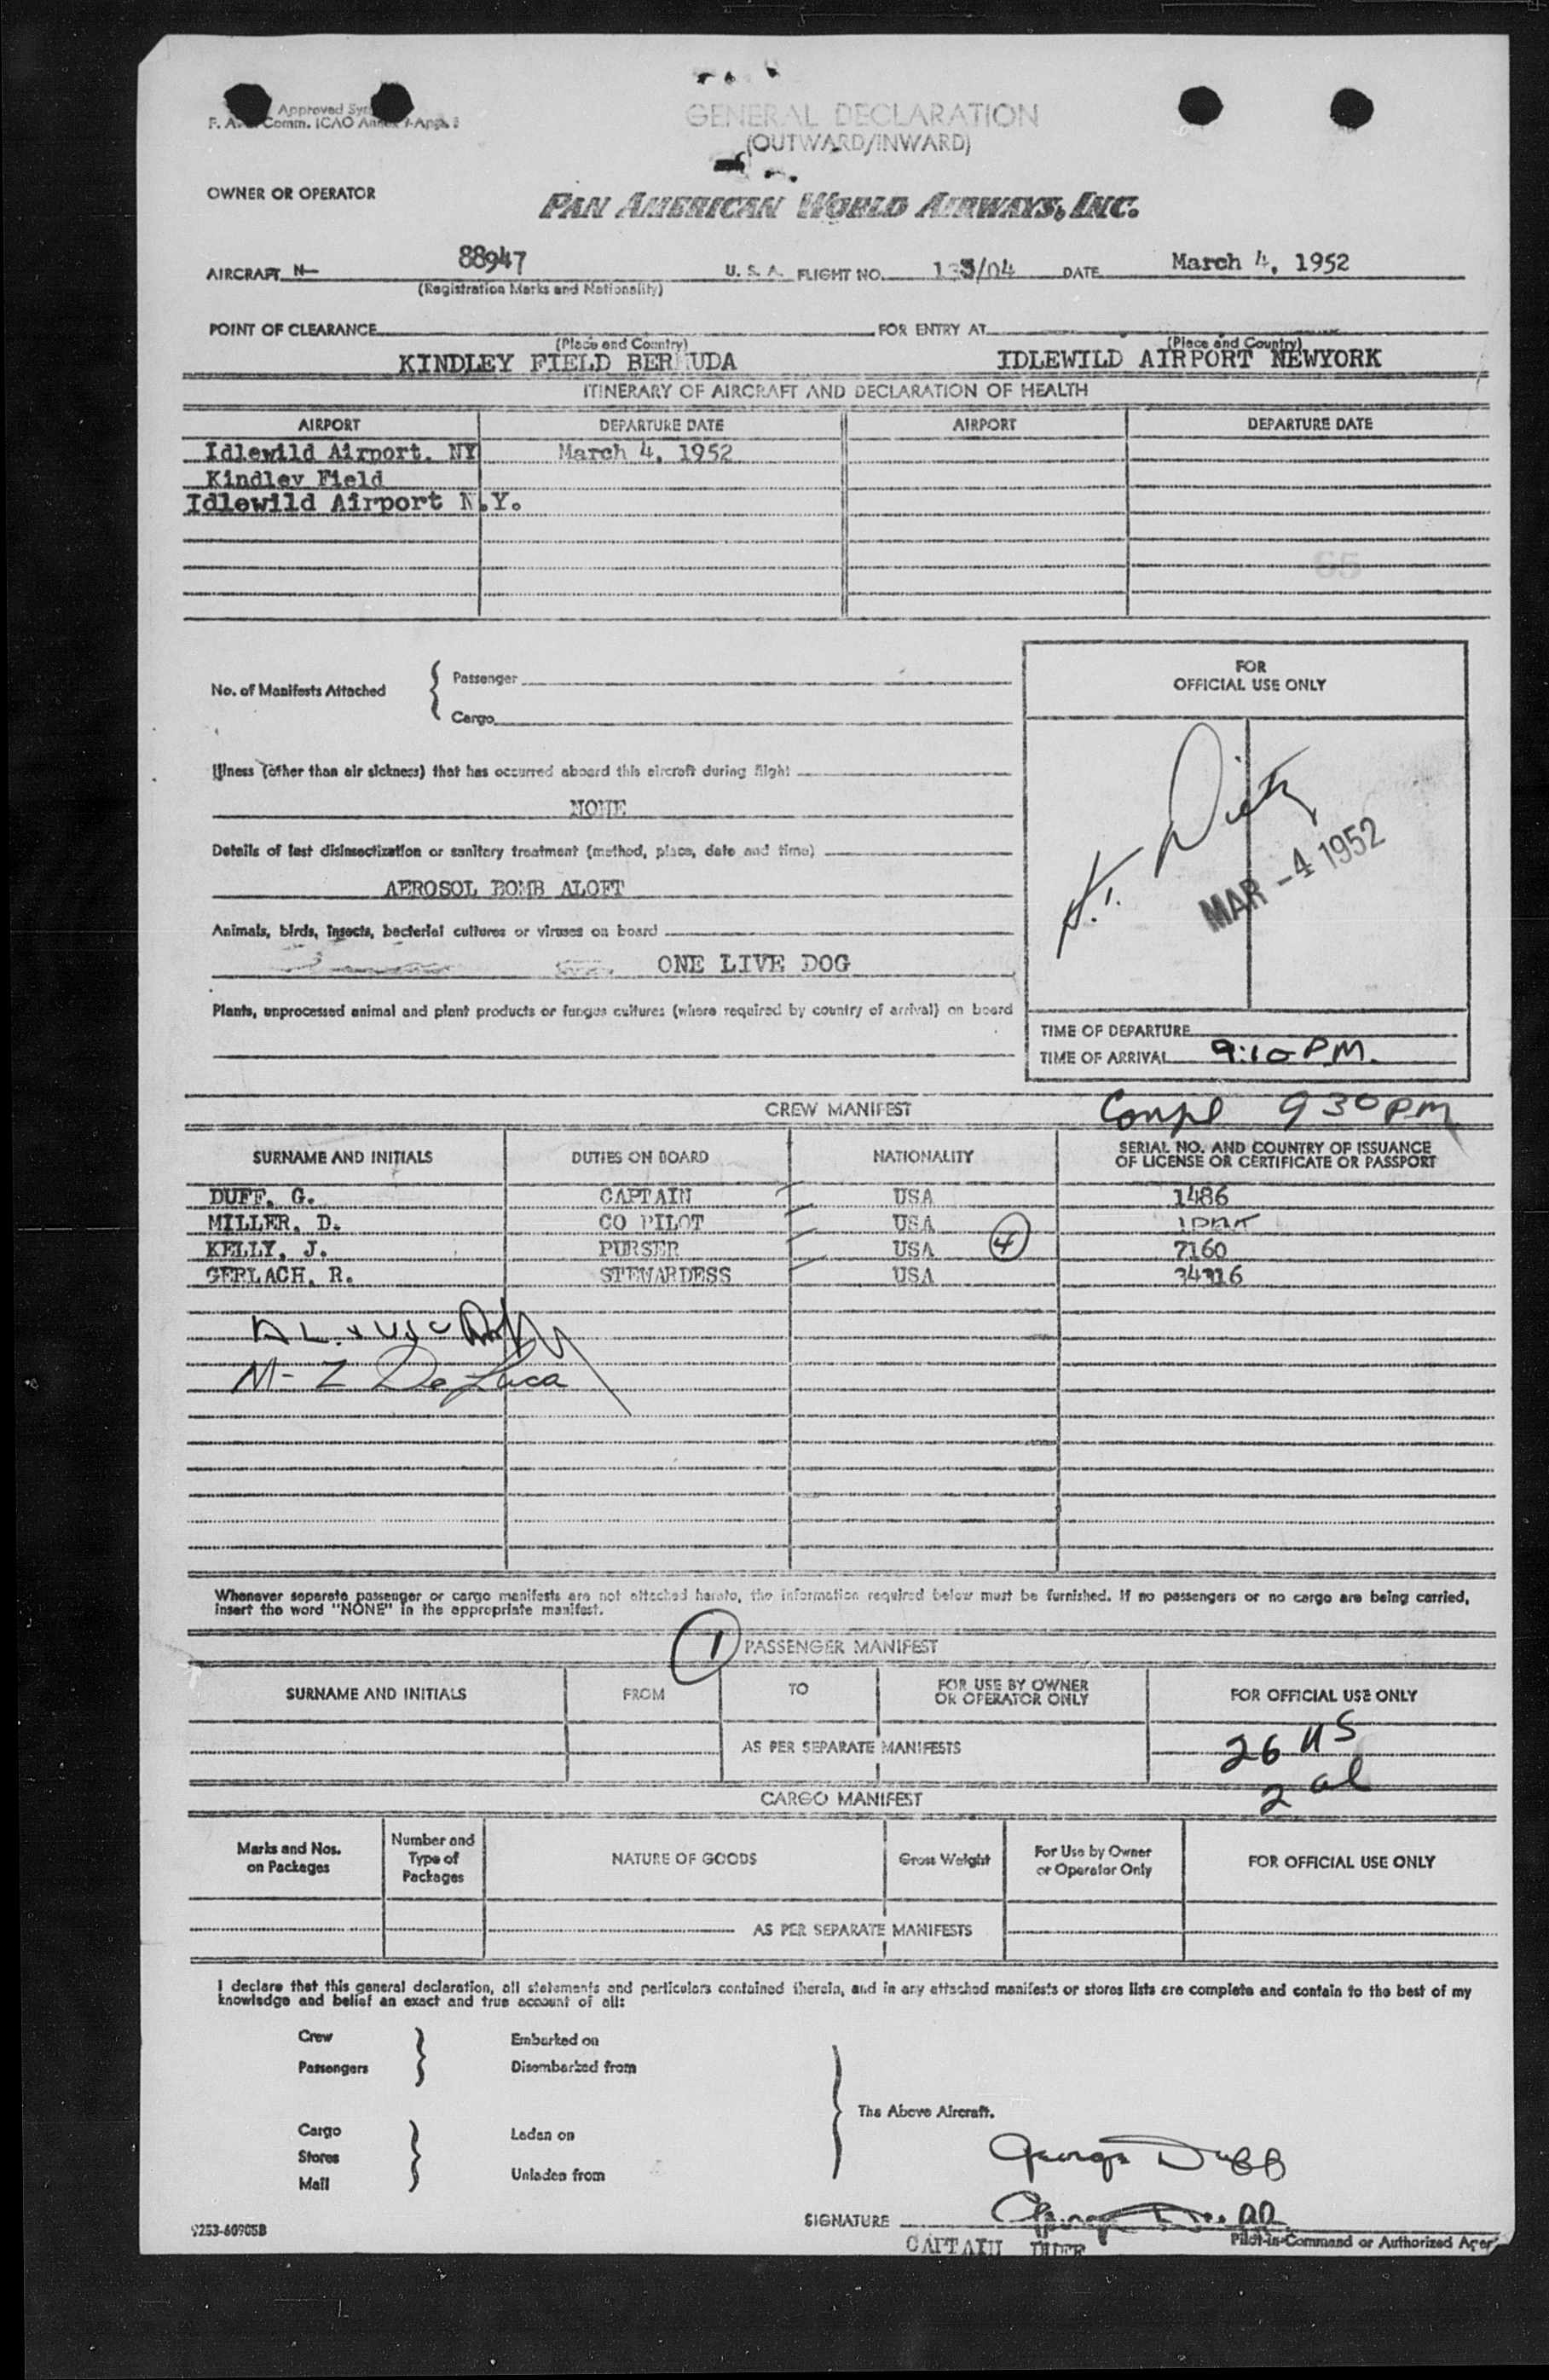 Approved
F. A. Comm. ICAO Annex
GENERAL DECLARATION
(OUTWARD/INWARD)
OWNER OR OPERATOR
PAN AMERICAN WORLD AIRWAYS, INC.
AIRCRAFT N- 88947 U. S. A. FLIGHT NO. /04 DATE March 4, 1952
(Registration Marks and Nationality)
POINT OF CLEARANCE FOR ENTRY AT
(Place and Country) (Place and Country)
KINDLEY FIELD BER UDA IDLEWILD AIRPORT NEWYORK
ITINERARY OF AIRCRAFT AND DECLARATION OF HEALTH
AIRPORT DEPARTURE DATE AIRPORT DEPARTURE DATE
Idlewild Airport. NY March 4, 1952
Kindley Field
Idlewild Airport N.Y.
65
FOR
OFFICIAL USE ONLY
No. of Manifests Attached
Passenger
Cargo
Illness (other than air sickness) that has occurred aboard this aircraft during flight
NONE
Details of last disinsectization or sanitary treatment (method, place, date and time)
AEROSOL BOMB ALOFT
MAR -4 1952
Animals, birds, insects, bacterial cultures or viruses on board
ONE LIVE DOG
Plants, unprocessed animal and plant products or fungus cultures (where required by country of arrival) on board
TIME OF DEPARTURE
TIME OF ARRIVAL 9:10 PM.
CREW MANIFEST Compl 9 30 PM
SURNAME AND INITIALS DUTIES ON BOARD NATIONALITY SERIAL NO. AND COUNTRY OF ISSUANCE
OF LICENSE OR CERTIFICATE OR PASSPORT
DUFF, G. CAPTAIN USA 1486
MILLER, D. CO PILOT USA IDENT
KELLY, J. PURSER USA 4 7160
GERLACH, R. STEWARDESS USA 34316
M- Z De Luca
Whenever separate passenger or cargo manifests are not attached hereto, the information required below must be furnished. If no passengers or no cargo are being carried,
insert the word "NONE" in the appropriate manifest.
1 PASSENGER MANIFEST
SURNAME AND INITIALS FROM TO FOR USE BY OWNER
OR OPERATOR ONLY FOR OFFICIAL USE ONLY
AS PER SEPARATE MANIFESTS 26 US
2 al
CARGO MANIFEST
Marks and Nos.
on Packages Number and
Type of
Packages NATURE OF GOODS Gross Weight For Use by Owner
or Operator Only FOR OFFICIAL USE ONLY
AS PER SEPARATE MANIFESTS
I declare that this general declaration, all statements and particulars contained therein, and in any attached manifests or stores lists are complete and contain to the best of my
knowledge and belief an exact and true account of all:
Crew Embarked on
Passengers Disembarked from
The Above Aircraft.
Cargo Laden on
Stores
Mail Unladen from
George Duff
SIGNATURE George Duff
9253-60905B
CAPTAIN DUFF Pilot-in-Command or Authorized Agent